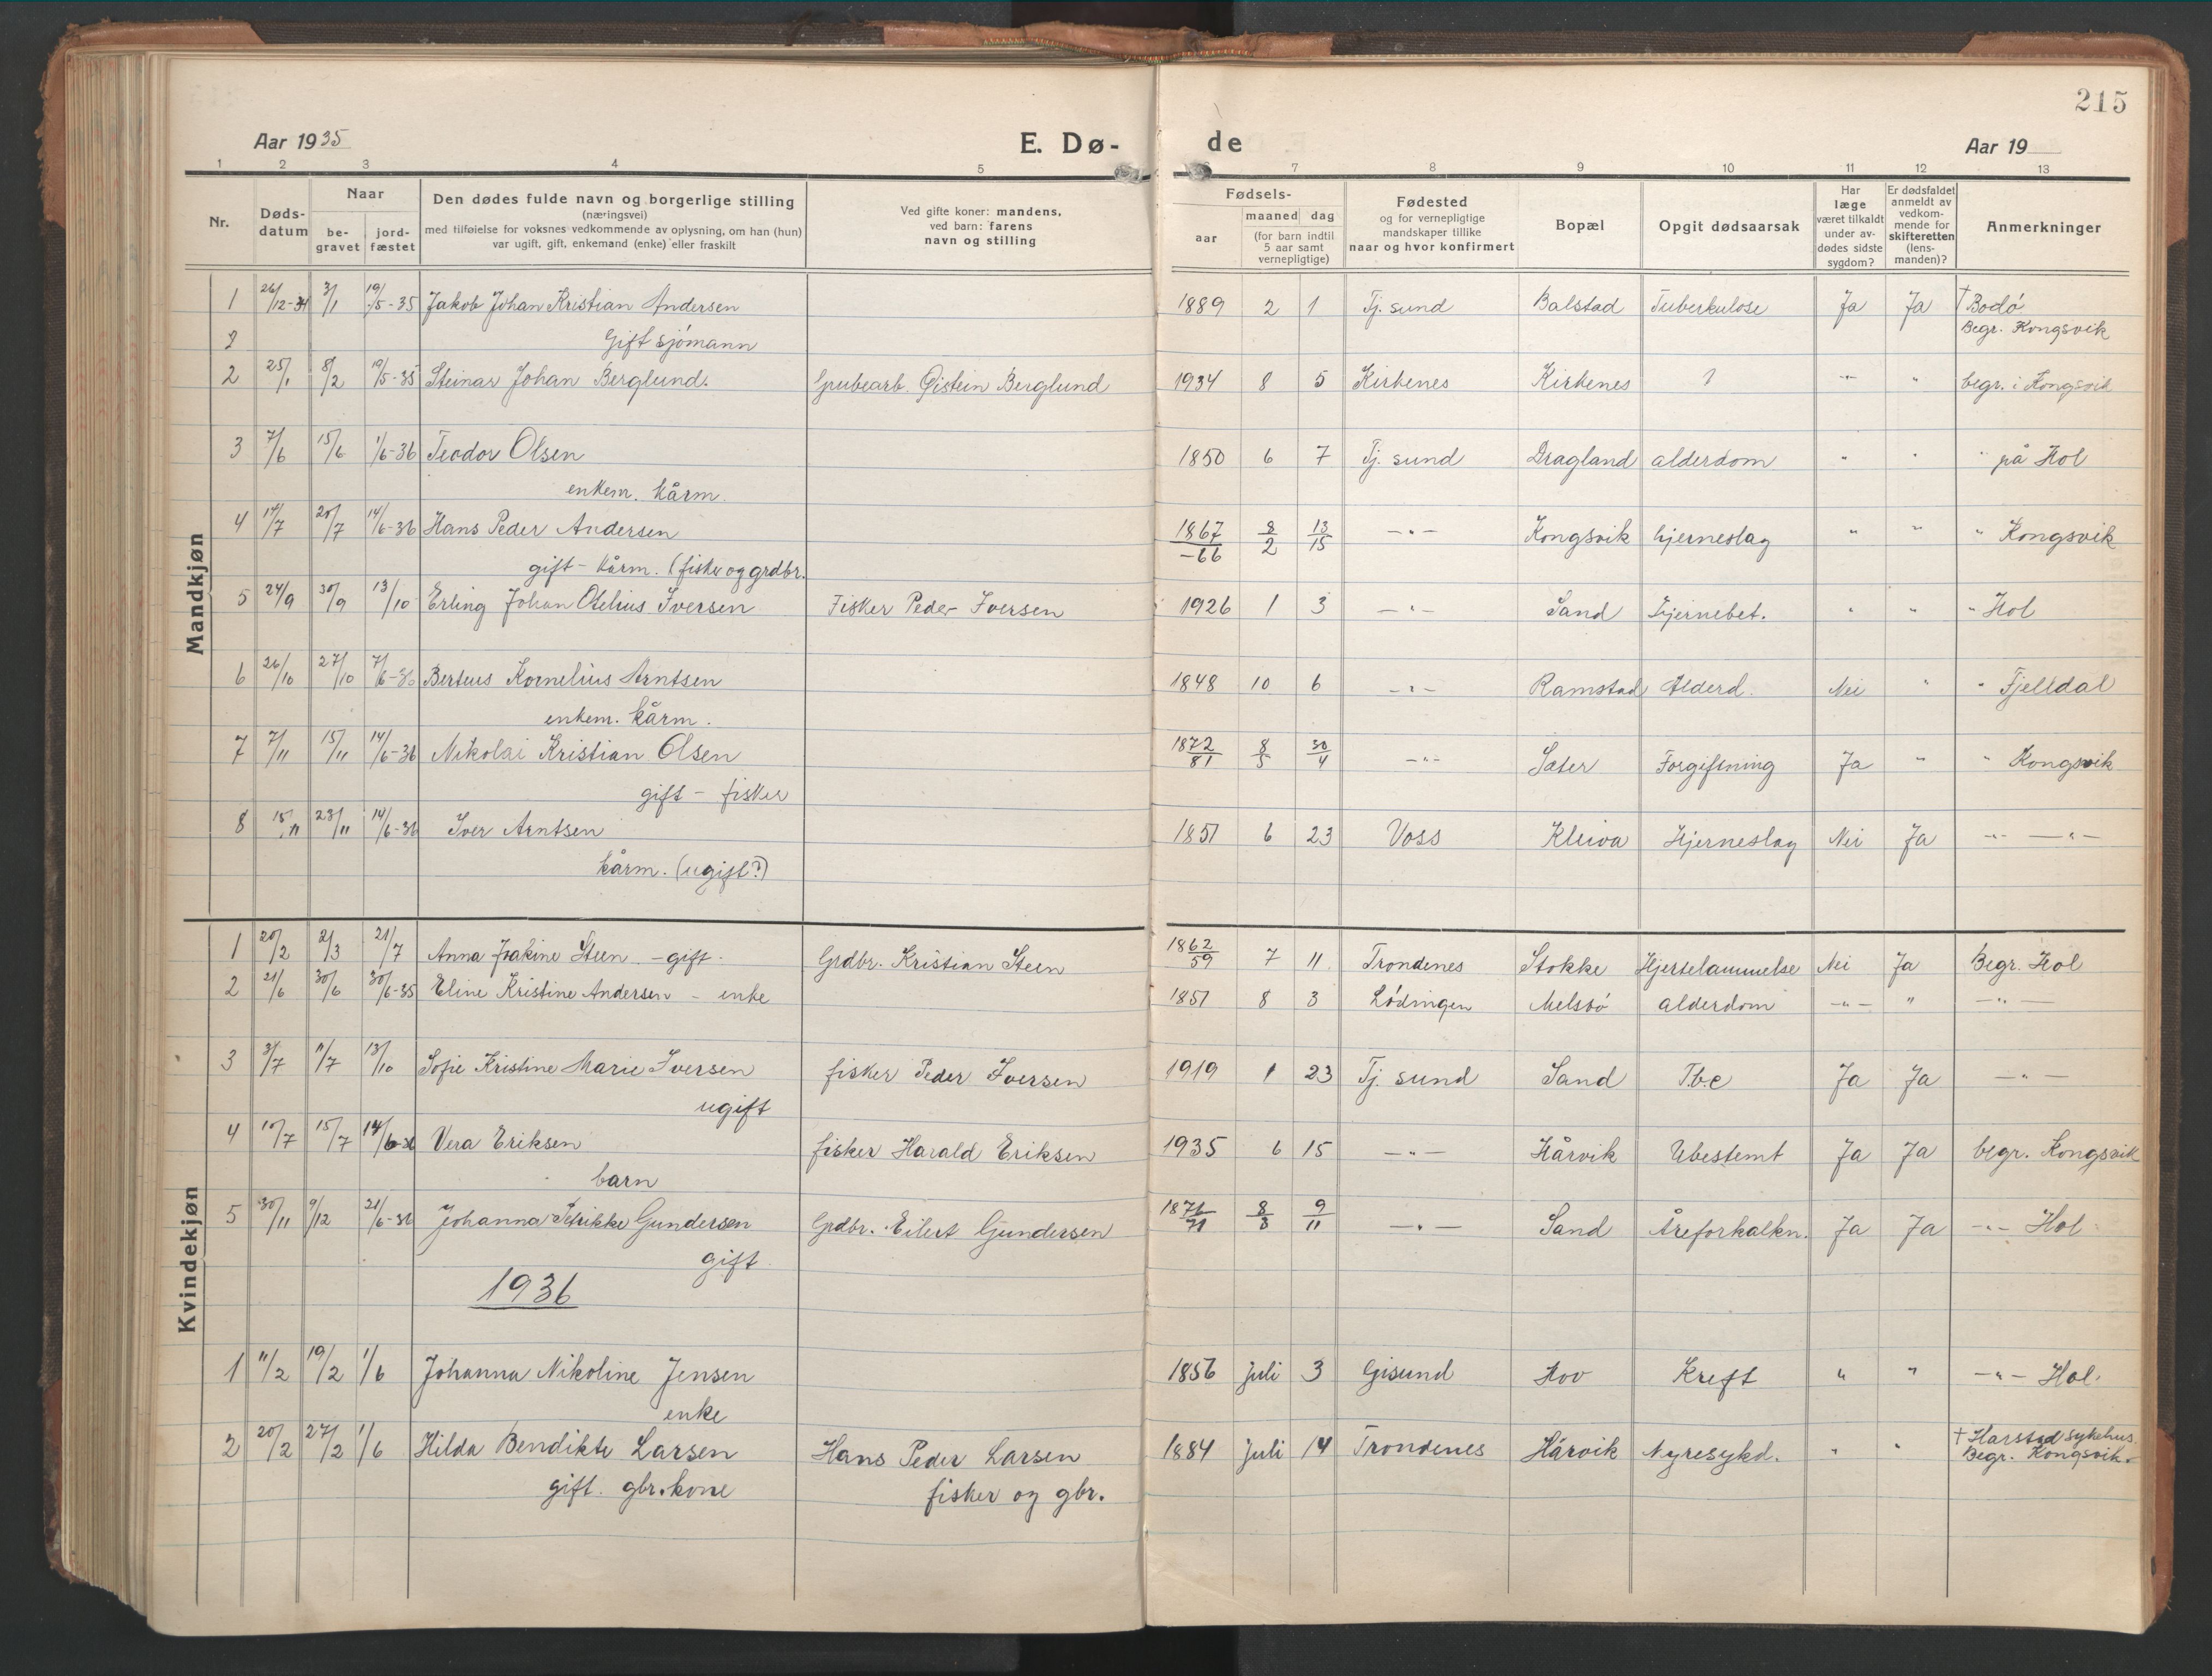 215
Aar 1935 E. Dø- de Aar 19
1 2 3 4 5 6 7 8 9 10 11 12 13
Nr. Døds-datum Naar be-gravet jord-fæstet Den dødes fulde navn og borgerlige stilling (næringsvei) med tilføielse for voksnes vedkommende av oplysning, om han (hun) var ugift, gift, enkemand (enke) eller fraskilt Ved gifte koner: mandens, ved barn: farens navn og stilling Fødsels- aar maaned dag (for barn indtil 5 aar samt vernepligtige) Fødested og for vernepligtige mandskaper tillike naar og hvor konfirmert Bopæl Opgit dødsaarsak Har læge været tilkaldt under av-dødes sidste sygdom? Er dødsfaldet anmeldt av vedkom-mende for skifteretten (lens-manden)? Anmerkninger
Mandkjøn
1 26/12-34 3/1 19/5-35 Jakob Johan Kristian Andersen 1889 2 1 Tj. sund Balstad Tuberkulose Ja Ja † Bodø
2 Gift sjømann Begr. Kongsvik
2 25/1 8/2 19/5-35 Steinar Johan Berglund. Grubearb. Øistein Berglund 1934 8 5 Kirkenes Kirkenes ? -"- " begr. i Kongsvik
3 7/6 15/6 1/6-36 Teodor Olsen 1850 6 7 Tj. sund Dragland alderdom " " " på Hol
enkem. kårm.
4 14/7 20/7 14/6-36 Hans Peder Andersen 1867/-66 8/2 13/15 -"- Kongsvik hjerneslag " " " Kongsvik
gift - kårm. (fisker og grdbr.
5 24/9 30/9 13/10 Erling Johan Otelius Iversen Fisker Peder Iversen 1926 1 3 -"- Sand Hjernebet. " " " Hol
6 26/10 27/10 7/6-36 Berteus Kornelius Arntsen 1848 10 6 -"- Ramstad Alderd. Nei " " Fjelldal
enkem. kårm.
7 7/11 15/11 14/6-36 Nikolai Kristian Olsen 1872/81 8/5 30/4 -"- Sæter Forgiftning Ja " " Kongsvik
gift - fisker
8 15/11 23/11 14/6-36 Iver Arntsen 1851 6 23 Voss Kleiva Hjerneslag Nei Ja -"- -"-
kårm. (ugift?)
Kvindekjøn
1 20/2 2/3 21/7 Anna Joakine Steen - gift. Grdbr. Kristian Steen 1862/59 7 11 Trondenes Stokke Hjertelammelse Nei Ja Begr. Hol
2 21/6 30/6 30/6-35 Eline Kristine Andersen - enke 1851 8 3 Lødingen Melsbø alderdom -"- " -"-
3 3/7 11/7 13/10 Sofie Kristine Marie Iversen fisker Peder Iversen 1919 1 23 Tj. sund Sand Tbc Ja Ja -"-
ugift
4 10/7 15/7 14/6-36 Vera Eriksen fisker Harald Eriksen 1935 6 15 -"- Hårvik Ubestemt Ja Ja begr. Kongsvik
barn
5 30/11 9/12 21/6-36 Johanna Gundersen Grdbr. Eilert Gundersen 8/8 9/11 -"- Sand Åreforkalkn. Ja Ja -"- Hol
gift
1936
1 11/2 19/2 1/6 Johanna Nikoline Jensen 1856 juli 3 Gisund Hov Kreft " " -"- Hol.
enke
2 20/2 27/2 1/6 Hilda Bendikte Larsen Hans Peder Larsen 1884 juli 14 Trondenes Hårvik Nyresykd. " " † Harstad sykehus.
gift. gbr.kone fisker og gbr. Begr. Kongsvik.